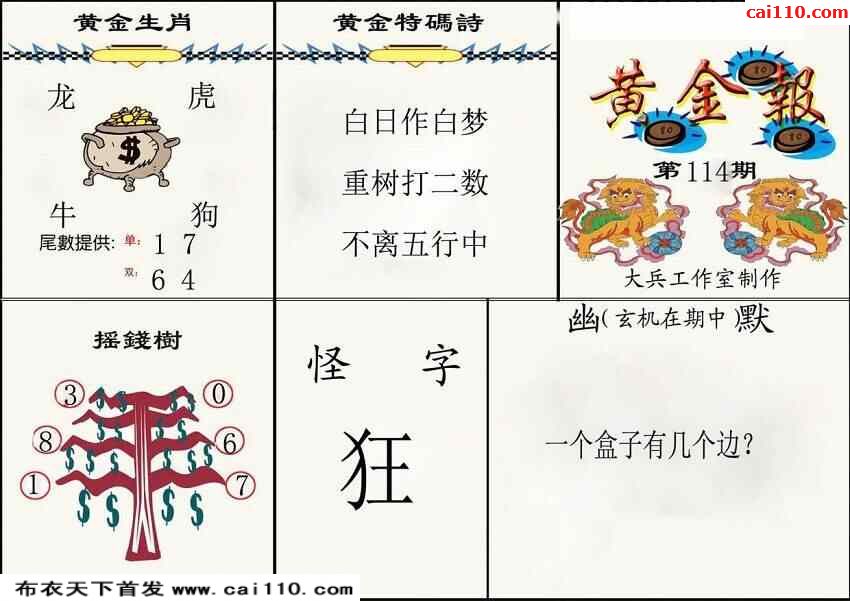 cai110.com
黄金生肖
龙 虎
$
牛 狗
尾數提供: 单: 1 7
双: 6 4
黄金特碼詩
白日作白梦
重树打二数
不离五行中
黄金報
第114期
大兵工作室制作
摇錢樹
3 0
8 6
1 7
怪 字
狂
幽(玄机在期中)默
一个盒子有几个边?
布衣天下首发 www.cai110.com